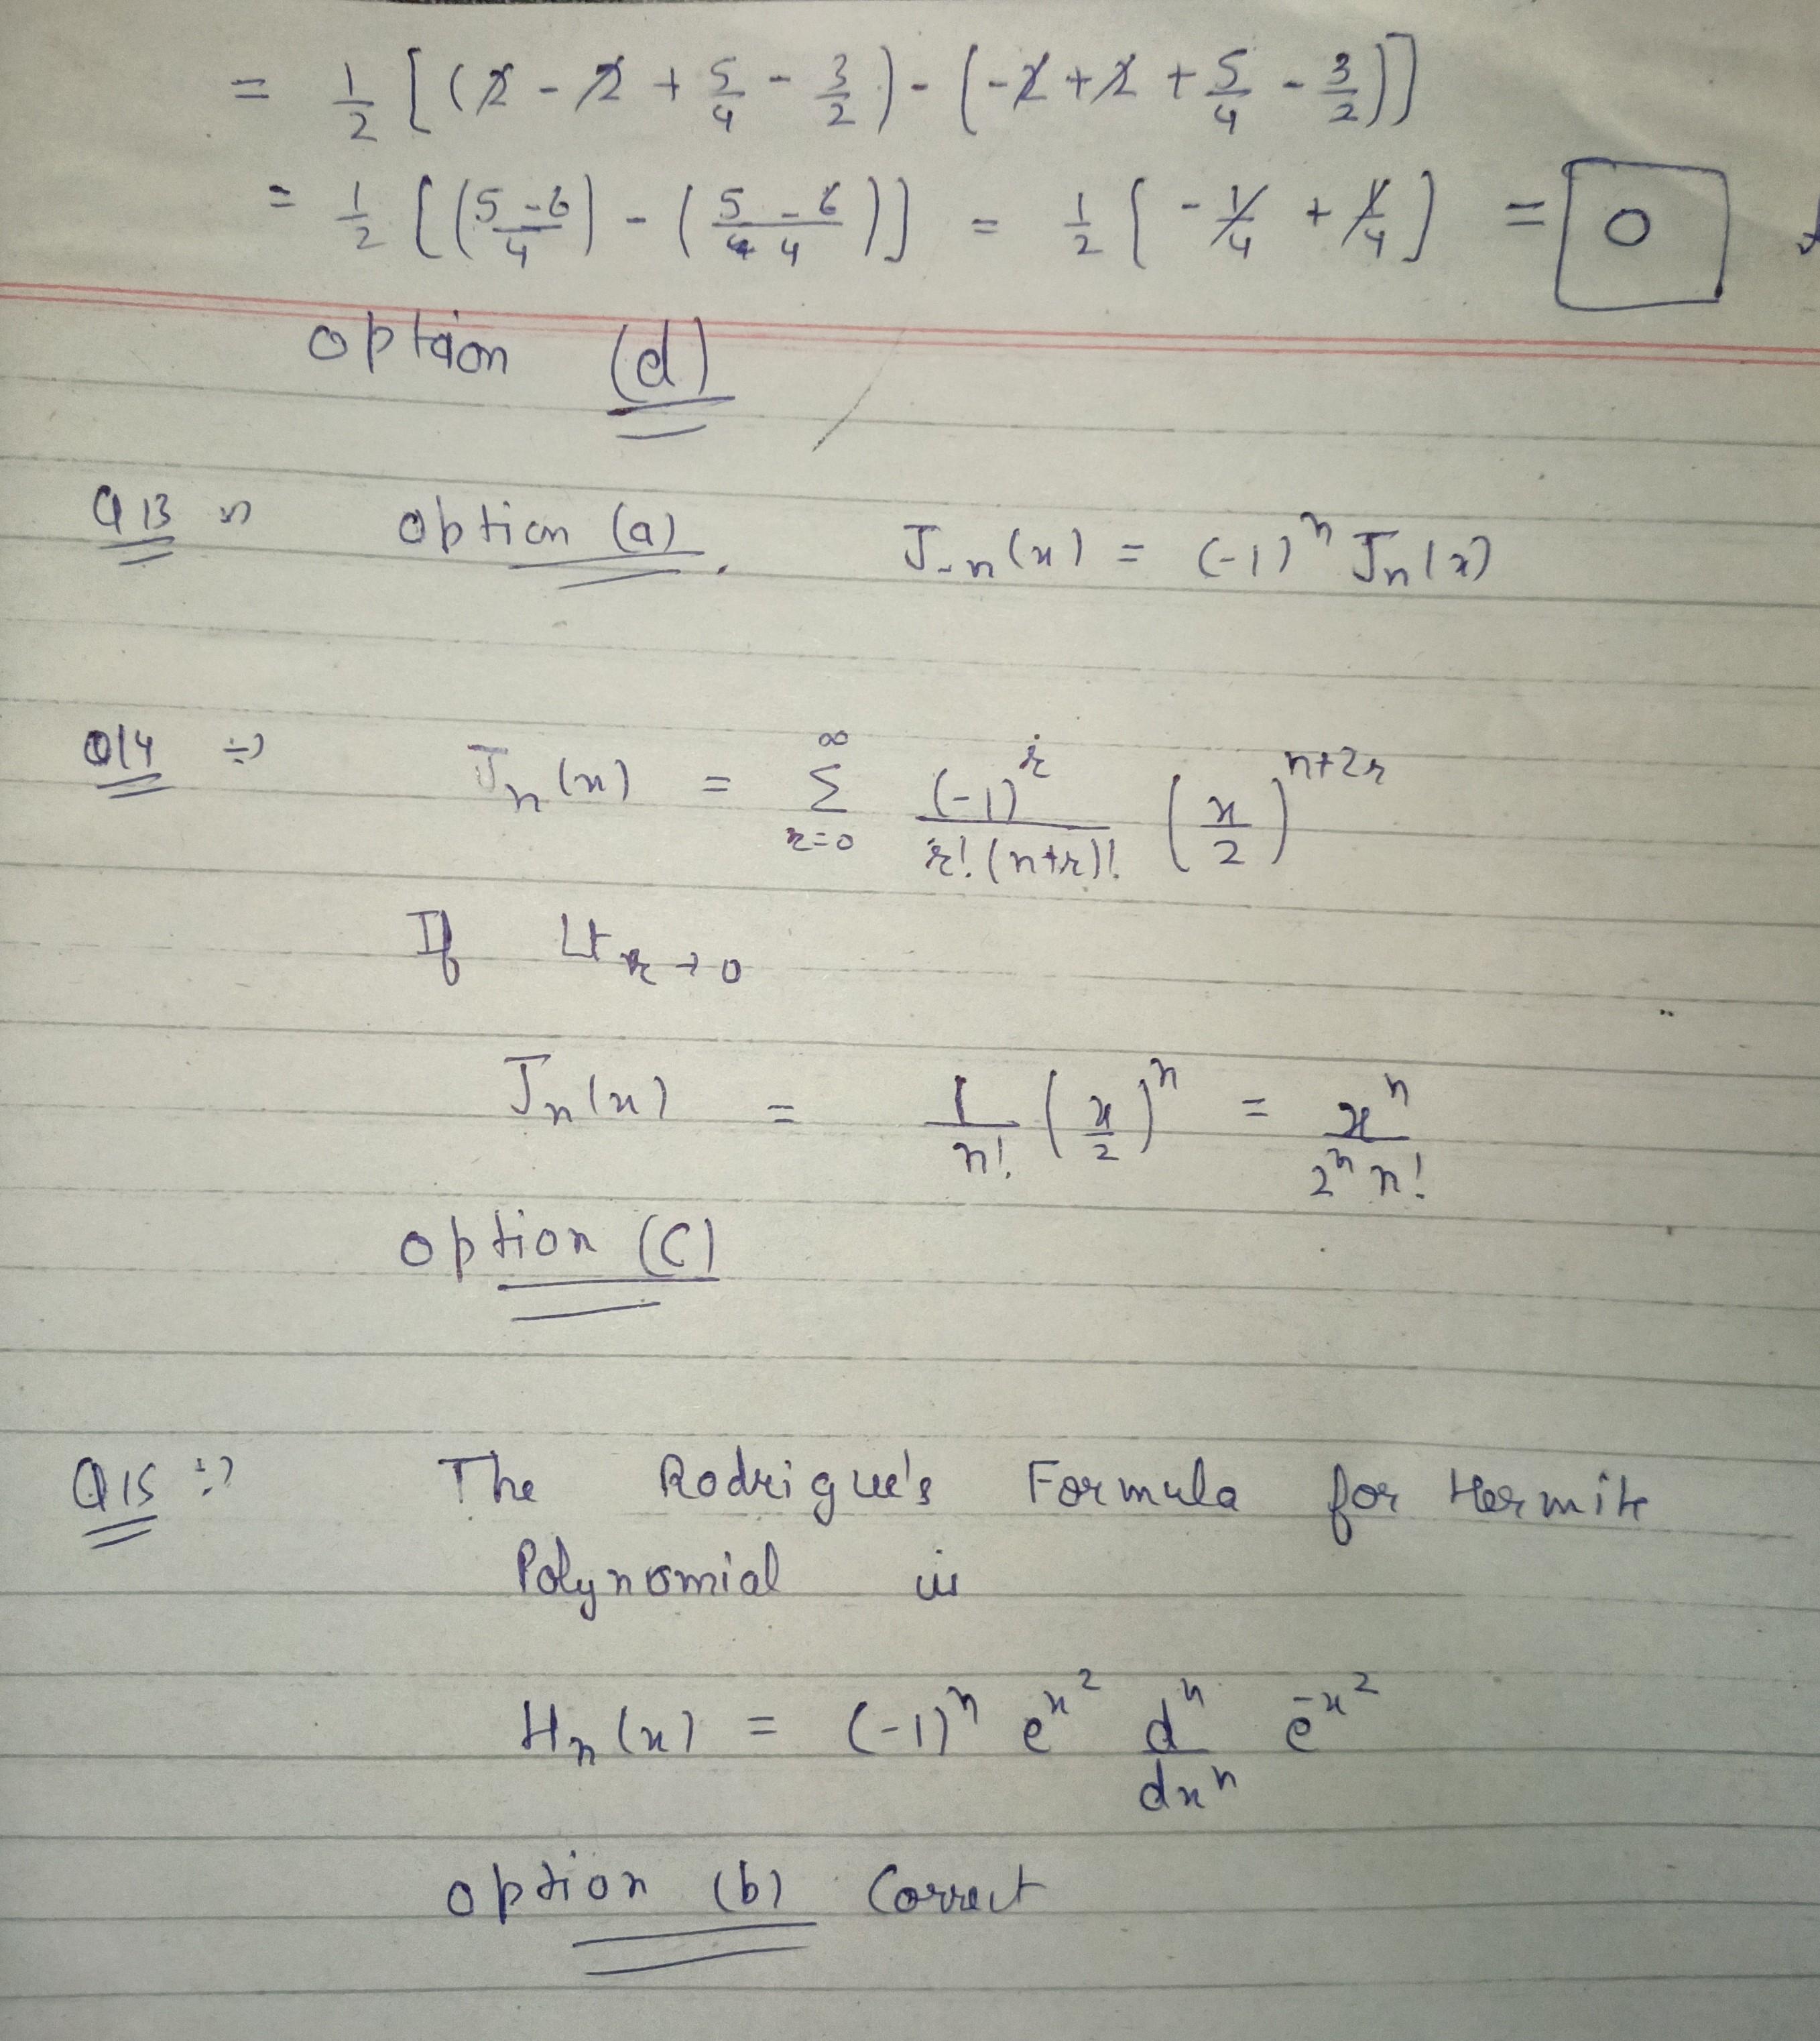 = 1/2 [(2 - 2 + 5/4 - 3/2) - (-2 + 2 + 5/4 - 3/2)]
= 1/2 [(5-6/4) - (5-6/4)] = 1/2 [-1/4 + 1/4] = 0
option (d)
Q13 ⇒ option (a). J₋ₙ(x) = (-1)ⁿ Jₙ(x)
Q14 ⇒ Jₙ(x) = ∞ Σ r=0 (-1)^r / r!(n+r)! (x/2)^(n+2r)
If Lt r→0
Jₙ(x) = 1/n! (x/2)ⁿ = xⁿ / 2ⁿ n!
option (C)
Q15 ⇒ The Rodrigue's Formula for Hermite
Polynomial is
Hₙ(x) = (-1)ⁿ e^(x²) dⁿ/dxⁿ e^(-x²)
option (b) Correct